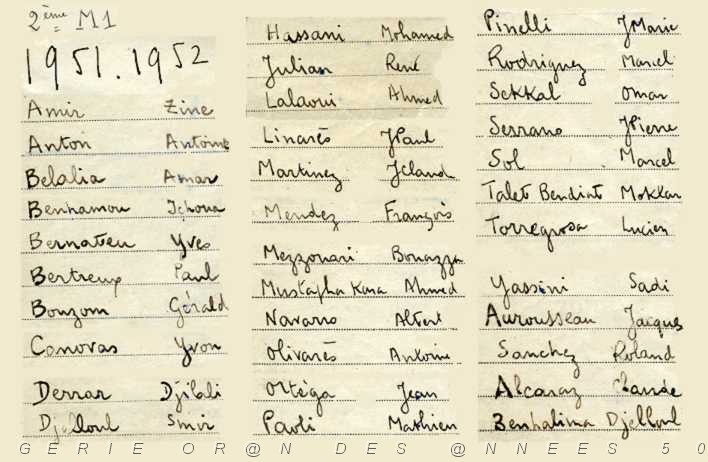 2ème M1
1951.1952
Amir Zine
Anton Antoine
Belalia Amar
Benhamou Ichoua
Bernateau Yves
Bertreux Paul
Bouzom Gérald
Canovas Yvon
Derrar Djilali
Djelloul Smir
Hassani Mohamed
Julian René
Lalaoui Ahmed
Linarès JPaul
Martinez JClaud
Mendez François
Mezzonari Bonazza
Mustapha Kara Ahmed
Navarro Albert
Olivarès Antoine
Ortéga Jean
Paoli Mathieu
Pinelli JMarie
Rodriguez Marcel
Sekkal Omar
Serrano JPierre
Sol Marcel
Talet Bendiat Mokktar
Torregrosa Lucien
Yassini Sadi
Aurousseau Jacques
Sanchez Roland
Alcaraz Claude
Benhalima Djelloul
GERIE OR@N DES @NNEES 50